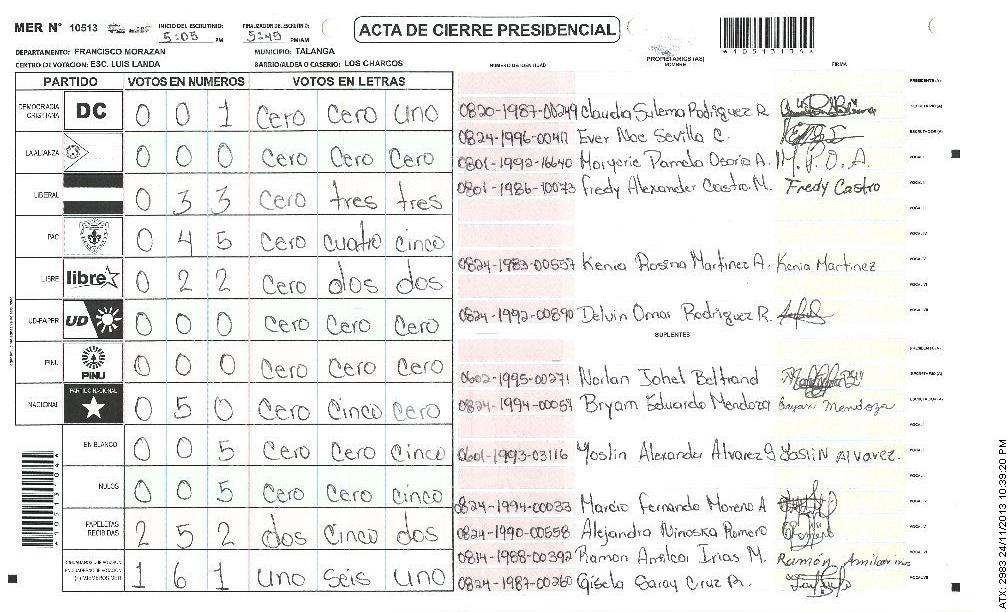 MER Nº 10513 INICIO DEL ESCRUTINIO: 5:05 PM FINALIZACION DEL ESCRUTINIO: 5:45 PM/AM ACTA DE CIERRE PRESIDENCIAL
DEPARTAMENTO: FRANCISCO MORAZAN MUNICIPIO: TALANGA
CENTRO DE VOTACION: ESC. LUIS LANDA BARRIO/ALDEA O CASERIO: LOS CHARCOS
NUMERO DE IDENTIDAD PROPIETARIOS (AS) NOMBRE FIRMA
PARTIDO VOTOS EN NUMEROS VOTOS EN LETRAS
DEMOCRACIA CRISTIANA DC 0 0 1 Cero Cero uno
LA ALIANZA 0 0 0 Cero Cero Cero
LIBERAL 0 3 3 Cero tres tres
PAC 0 4 5 Cero cuatro cinco
LIBRE libre 0 2 2 Cero dos dos
UD-FAPER UD 0 0 0 Cero Cero Cero
PINU PINU 0 0 0 Cero Cero Cero
NACIONAL PARTIDO NACIONAL 0 5 0 Cero Cinco cero
EN BLANCO 0 0 5 Cero Cero Cinco
NULOS 0 0 5 Cero Cero cinco
PAPELETAS RECIBIDAS 2 5 2 dos Cinco dos
1 6 1 uno seis uno
PRESIDENTE(A)
0820-1987-00249 Claudia Sulema Rodriguez R. SECRETARIO(A)
0824-1996-00417 Ever Noe Sevilla C. ESCRUTADOR(A)
0801-1992-16640 Margorie Pamela Osorio A. M.P.O.A. VOCAL I
0801-1986-10073 Fredy Alexander Castro M. Fredy Castro VOCAL II
0824-1983-00557 Kenia Rosina Martinez A. Kenia Martinez
0824-1992-00890 Delvin Omar Rodriguez R.
SUPLENTES
PRESIDENTE(A)
0602-1995-00271 Norlan Johel Beltrand SECRETARIO(A)
0824-1994-00057 Bryam Eduardo Mendoza Bryan Mendoza ESCRUTADOR(A)
0601-1993-03116 Yoslin Alexander Alvarez Yoslin Alvarez.
0824-1994-00033 Marcio Fernando Moreno A
0824-1990-00558 Alejandra Ninoska Romero
0814-1988-00392 Ramon Irias M. Ramón
0824-1987-00260 Gisela Saray Cruz
ATX: 2983 24/11/2013 10:39:20 PM